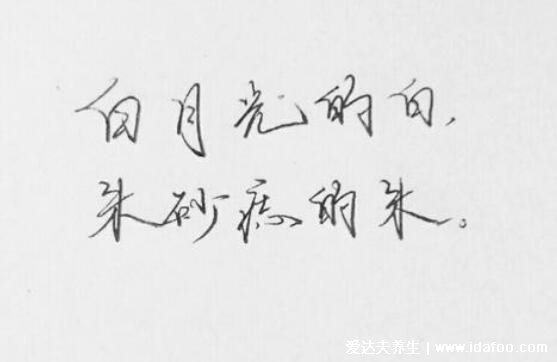 白月光的白，
朱砂痣的朱。
爱达夫养生｜www.idafoo.com